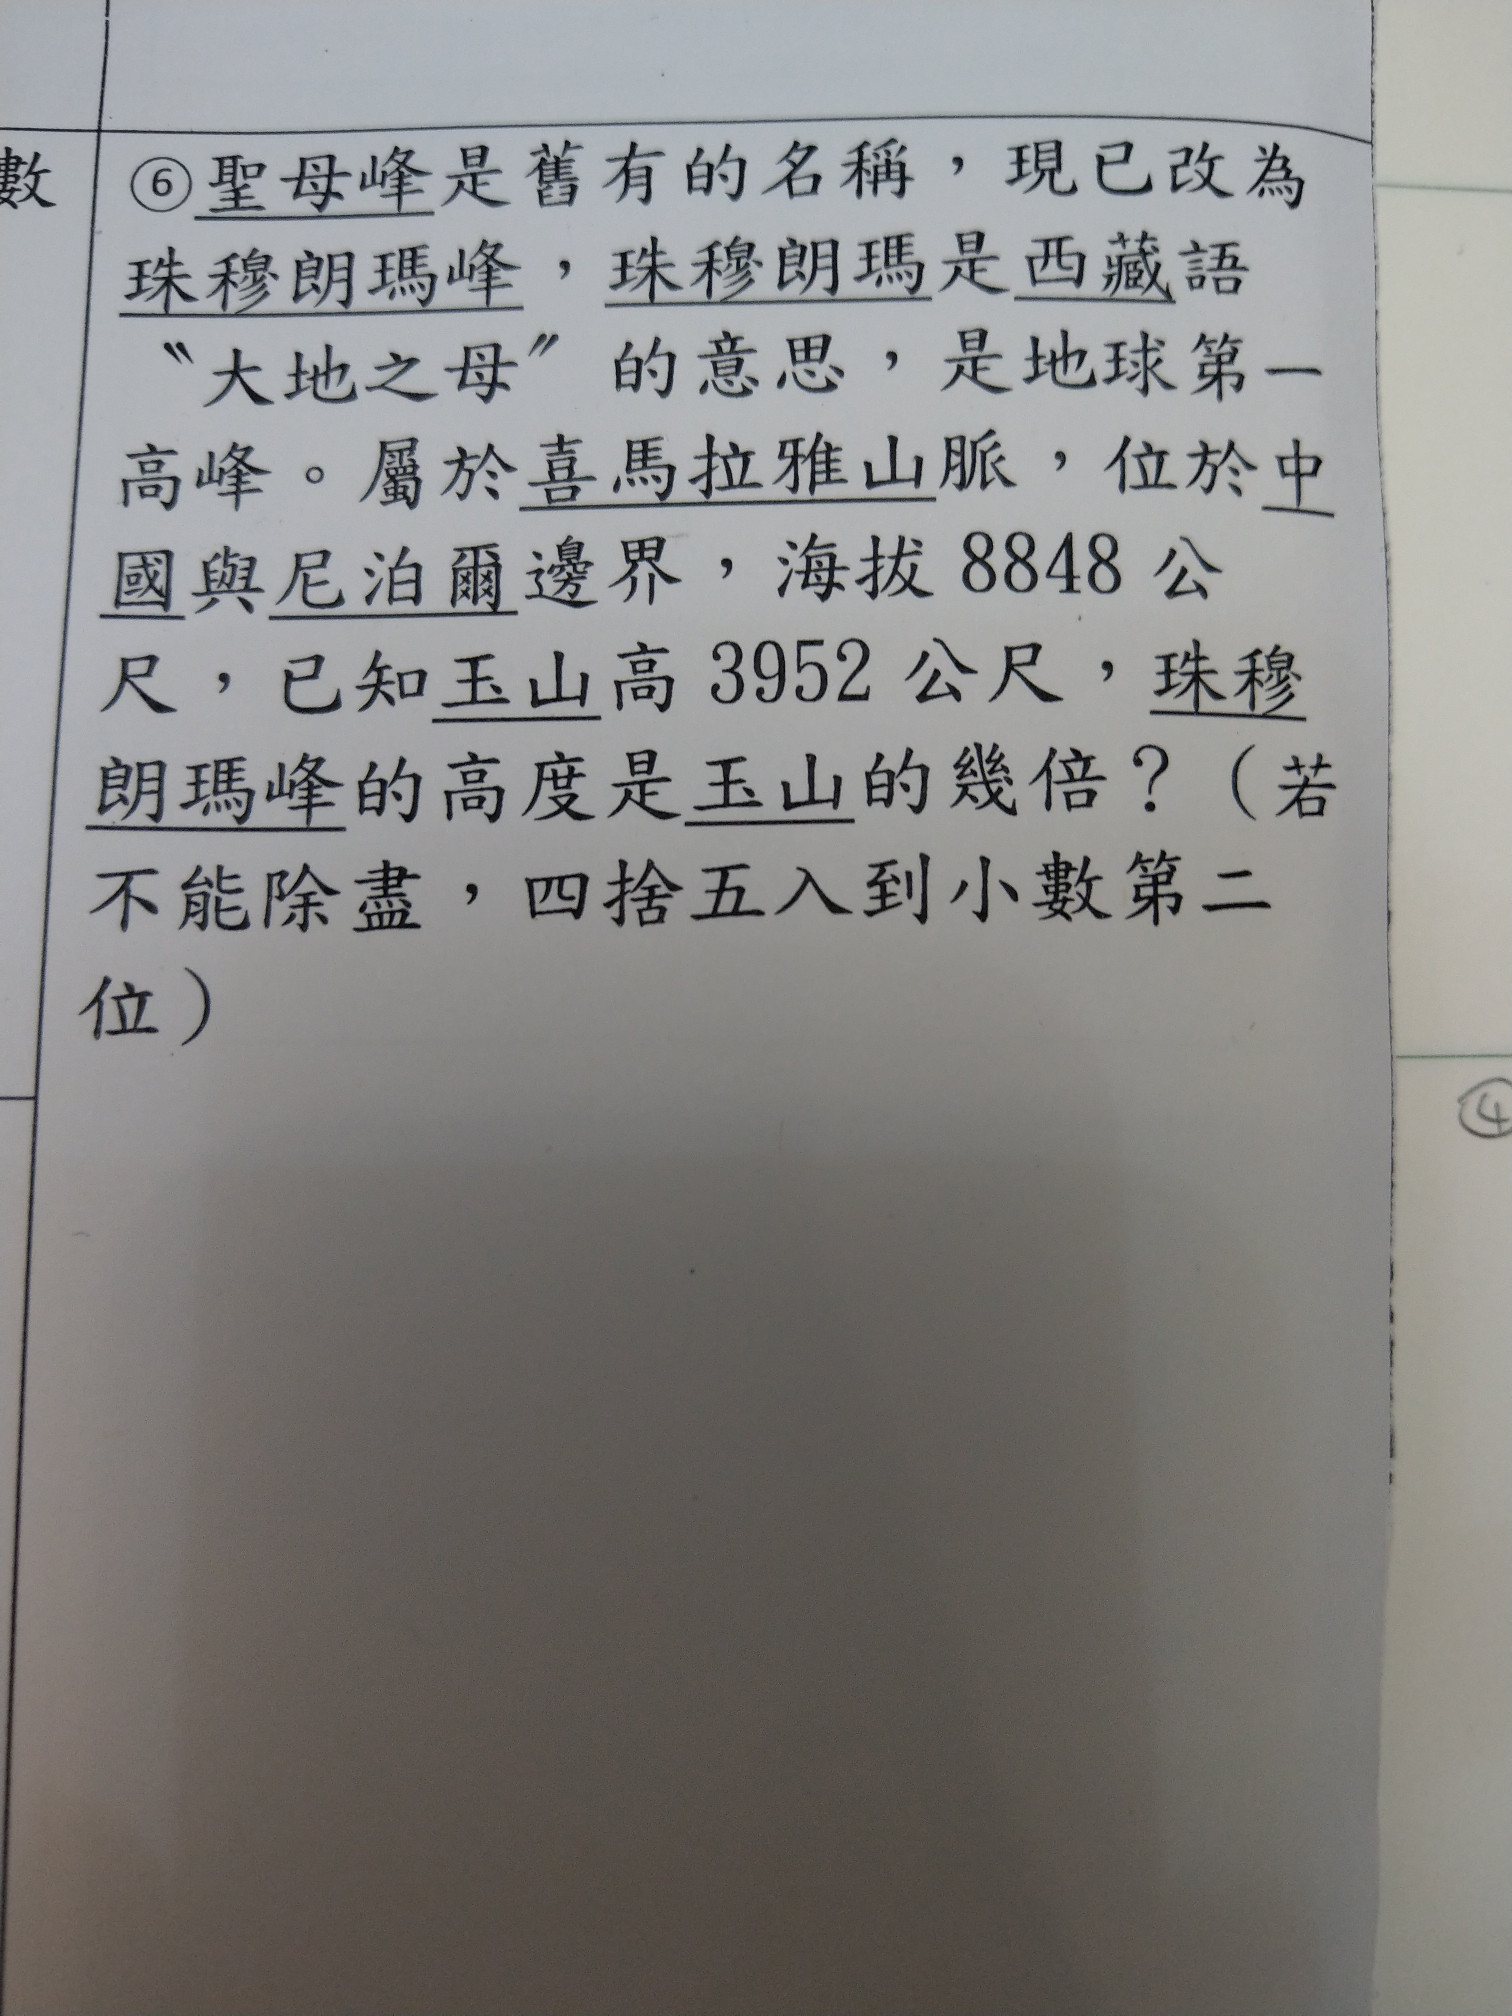 數
⑥聖母峰是舊有的名稱，現已改為
珠穆朗瑪峰，珠穆朗瑪是西藏語
〝大地之母〞的意思，是地球第一
高峰。屬於喜馬拉雅山脈，位於中
國與尼泊爾邊界，海拔 8848 公
尺，已知玉山高 3952 公尺，珠穆
朗瑪峰的高度是玉山的幾倍？（若
不能除盡，四捨五入到小數第二
位）
④